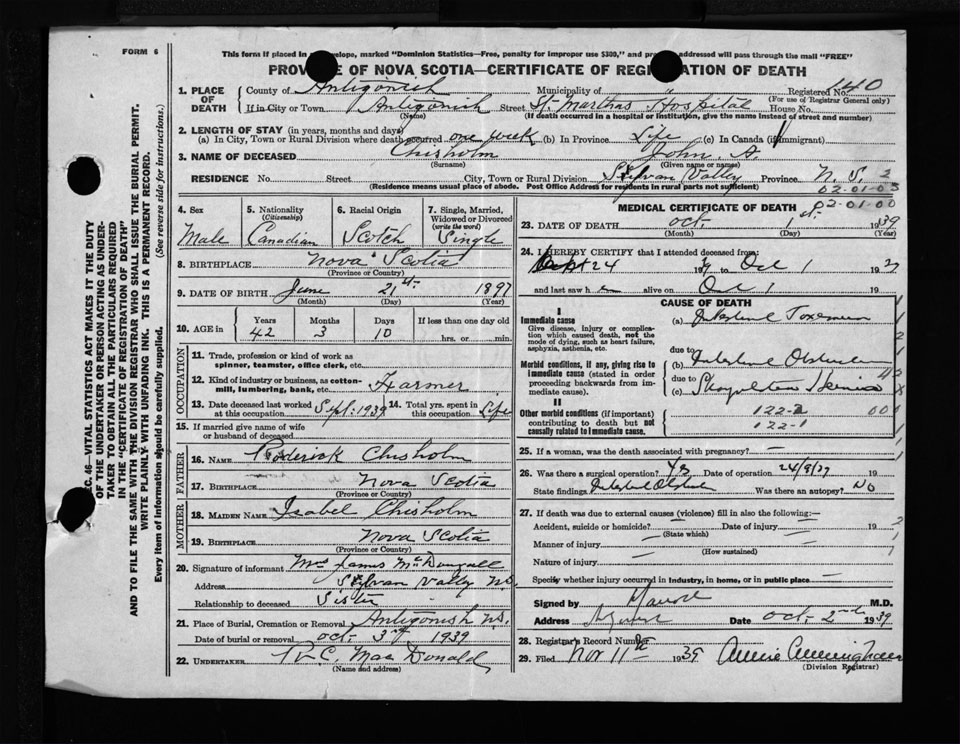 FORM 6
This form if placed in envelope, marked "Dominion Statistics—Free, penalty for improper use $300," and addressed will pass through the mail "FREE"
PROVINCE OF NOVA SCOTIA—CERTIFICATE OF REGISTRATION OF DEATH
1. PLACE OF DEATH
County of Antigonish Municipality of Registered No. 140
(For use of Registrar General only)
If in City or Town Antigonish Street St. Marthas Hospital House No.
(Name) (If death occurred in a hospital or institution, give the name instead of street and number)
2. LENGTH OF STAY (in years, months and days)
(a) In City, Town or Rural Division where death occurred one week (b) In Province Life (c) In Canada (if immigrant)
3. NAME OF DECEASED Chisholm John A.
(Surname) (Given name or names)
RESIDENCE No. Street City, Town or Rural Division Sylvan Valley Province N.S.
(Residence means usual place of abode. Post Office Address for residents in rural parts not sufficient)
02-01-03
02-01-00
4. Sex Male
5. Nationality (Citizenship) Canadian
6. Racial Origin Scotch
7. Single, Married, Widowed or Divorced (write the word) Single
8. BIRTHPLACE Nova Scotia
(Province or Country)
9. DATE OF BIRTH June 21st 1897
(Month) (Day) (Year)
10. AGE in Years Months Days If less than one day old
42 3 10 hrs. or min.
OCCUPATION
11. Trade, profession or kind of work as spinner, teamster, office clerk, etc.
12. Kind of industry or business, as cotton-mill, lumbering, bank, etc. Farmer
13. Date deceased last worked at this occupation Sept. 1939 14. Total yrs. spent in this occupation Life
15. If married give name of wife or husband of deceased
FATHER
16. NAME Roderick Chisholm
17. BIRTHPLACE Nova Scotia
(Province or Country)
MOTHER
18. MAIDEN NAME Isabel Chisholm
19. BIRTHPLACE Nova Scotia
(Province or Country)
20. Signature of informant Mrs James McDougall
Address Sylvan Valley N.S.
Relationship to deceased Sister
21. Place of Burial, Cremation or Removal Antigonish N.S.
Date of burial or removal Oct. 3rd 1939
22. UNDERTAKER R.C. MacDonald
(Name and address)
MEDICAL CERTIFICATE OF DEATH
23. DATE OF DEATH Oct. 1st 1939
(Month) (Day) (Year)
24. I HEREBY CERTIFY that I attended deceased from:
Sept 24 19 to Oct 1 19
and last saw h alive on Oct 1 19
CAUSE OF DEATH
I
Immediate cause
Give disease, injury or complication which caused death, not the mode of dying, such as heart failure, asphyxia, asthenia, etc.
(a) Intestinal Toxemia
due to
Morbid conditions, if any, giving rise to immediate cause (stated in order proceeding backwards from immediate cause).
(b) Intestinal Obstruction
due to
(c) Hernia
II
Other morbid conditions (if important) contributing to death but not causally related to immediate cause.
122-2
122-1
25. If a woman, was the death associated with pregnancy? —
26. Was there a surgical operation? Yes Date of operation 24/9/39 19
State findings Intestinal Obstruction Was there an autopsy? No
27. If death was due to external causes (violence) fill in also the following:—
Accident, suicide or homicide? — Date of injury — 19
(State which)
Manner of injury —
(How sustained)
Nature of injury —
Specify whether injury occurred in industry, in home, or in public place —
Signed by M.D.
Address Date Oct. 2nd 1939
28. Registrar's Record Number
29. Filed Nov 11th 1939 Annie Cunningham
(Division Registrar)
SEC. 46—VITAL STATISTICS ACT MAKES IT THE DUTY
OF THE UNDERTAKER OR PERSON ACTING AS UNDER-
TAKER TO OBTAIN ALL THE PARTICULARS REQUIRED
IN THE "CERTIFICATE OF REGISTRATION OF DEATH"
AND TO FILE THE SAME WITH THE DIVISION REGISTRAR WHO SHALL ISSUE THE BURIAL PERMIT.
WRITE PLAINLY WITH UNFADING INK. THIS IS A PERMANENT RECORD.
Every item of information should be carefully supplied. (See reverse side for instructions.)